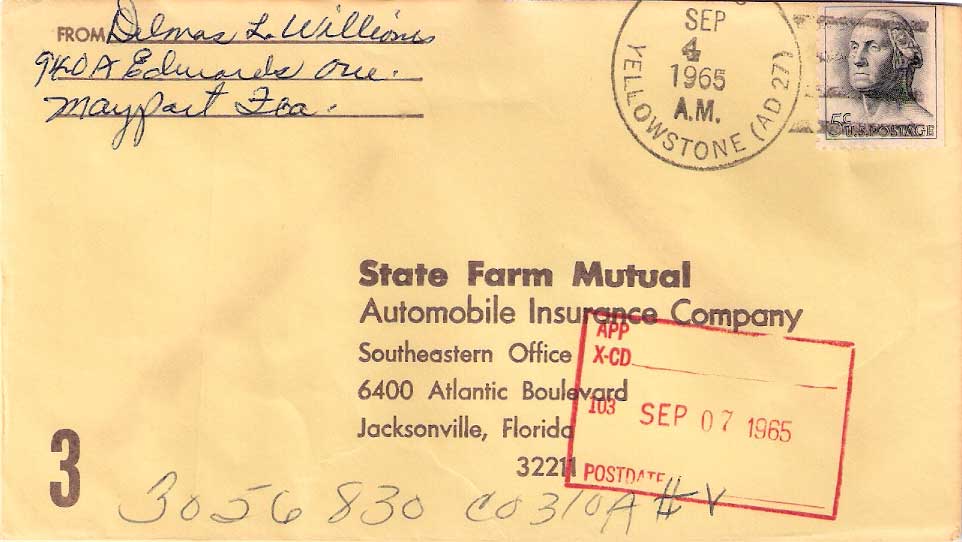 FROM Delmas L. Williams
940A Edwards Ave.
Mayport Fla.
SEP
4
1965
A.M.
YELLOWSTONE (AD 27)
5¢
U.S. POSTAGE
State Farm Mutual
Automobile Insurance Company
Southeastern Office
6400 Atlantic Boulevard
Jacksonville, Florida
32211
APP
X-CD
103 SEP 07 1965
POSTDATE
3
3056 830 C0310A